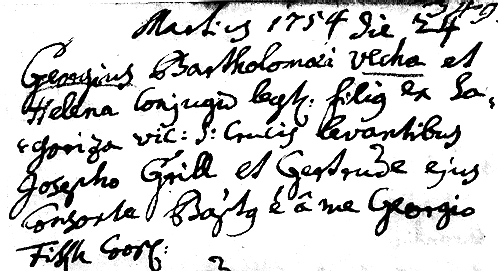 349.
Martius 1754 die 24
Georgius Bartholomæi Vecha et
Helena Conjugū legit: filig ex Za-
goriza vic: S: Crucis levantibus
Josepho Grill et Gertrude ejus
Consorte Baptg ē â me Georgio
Coop: